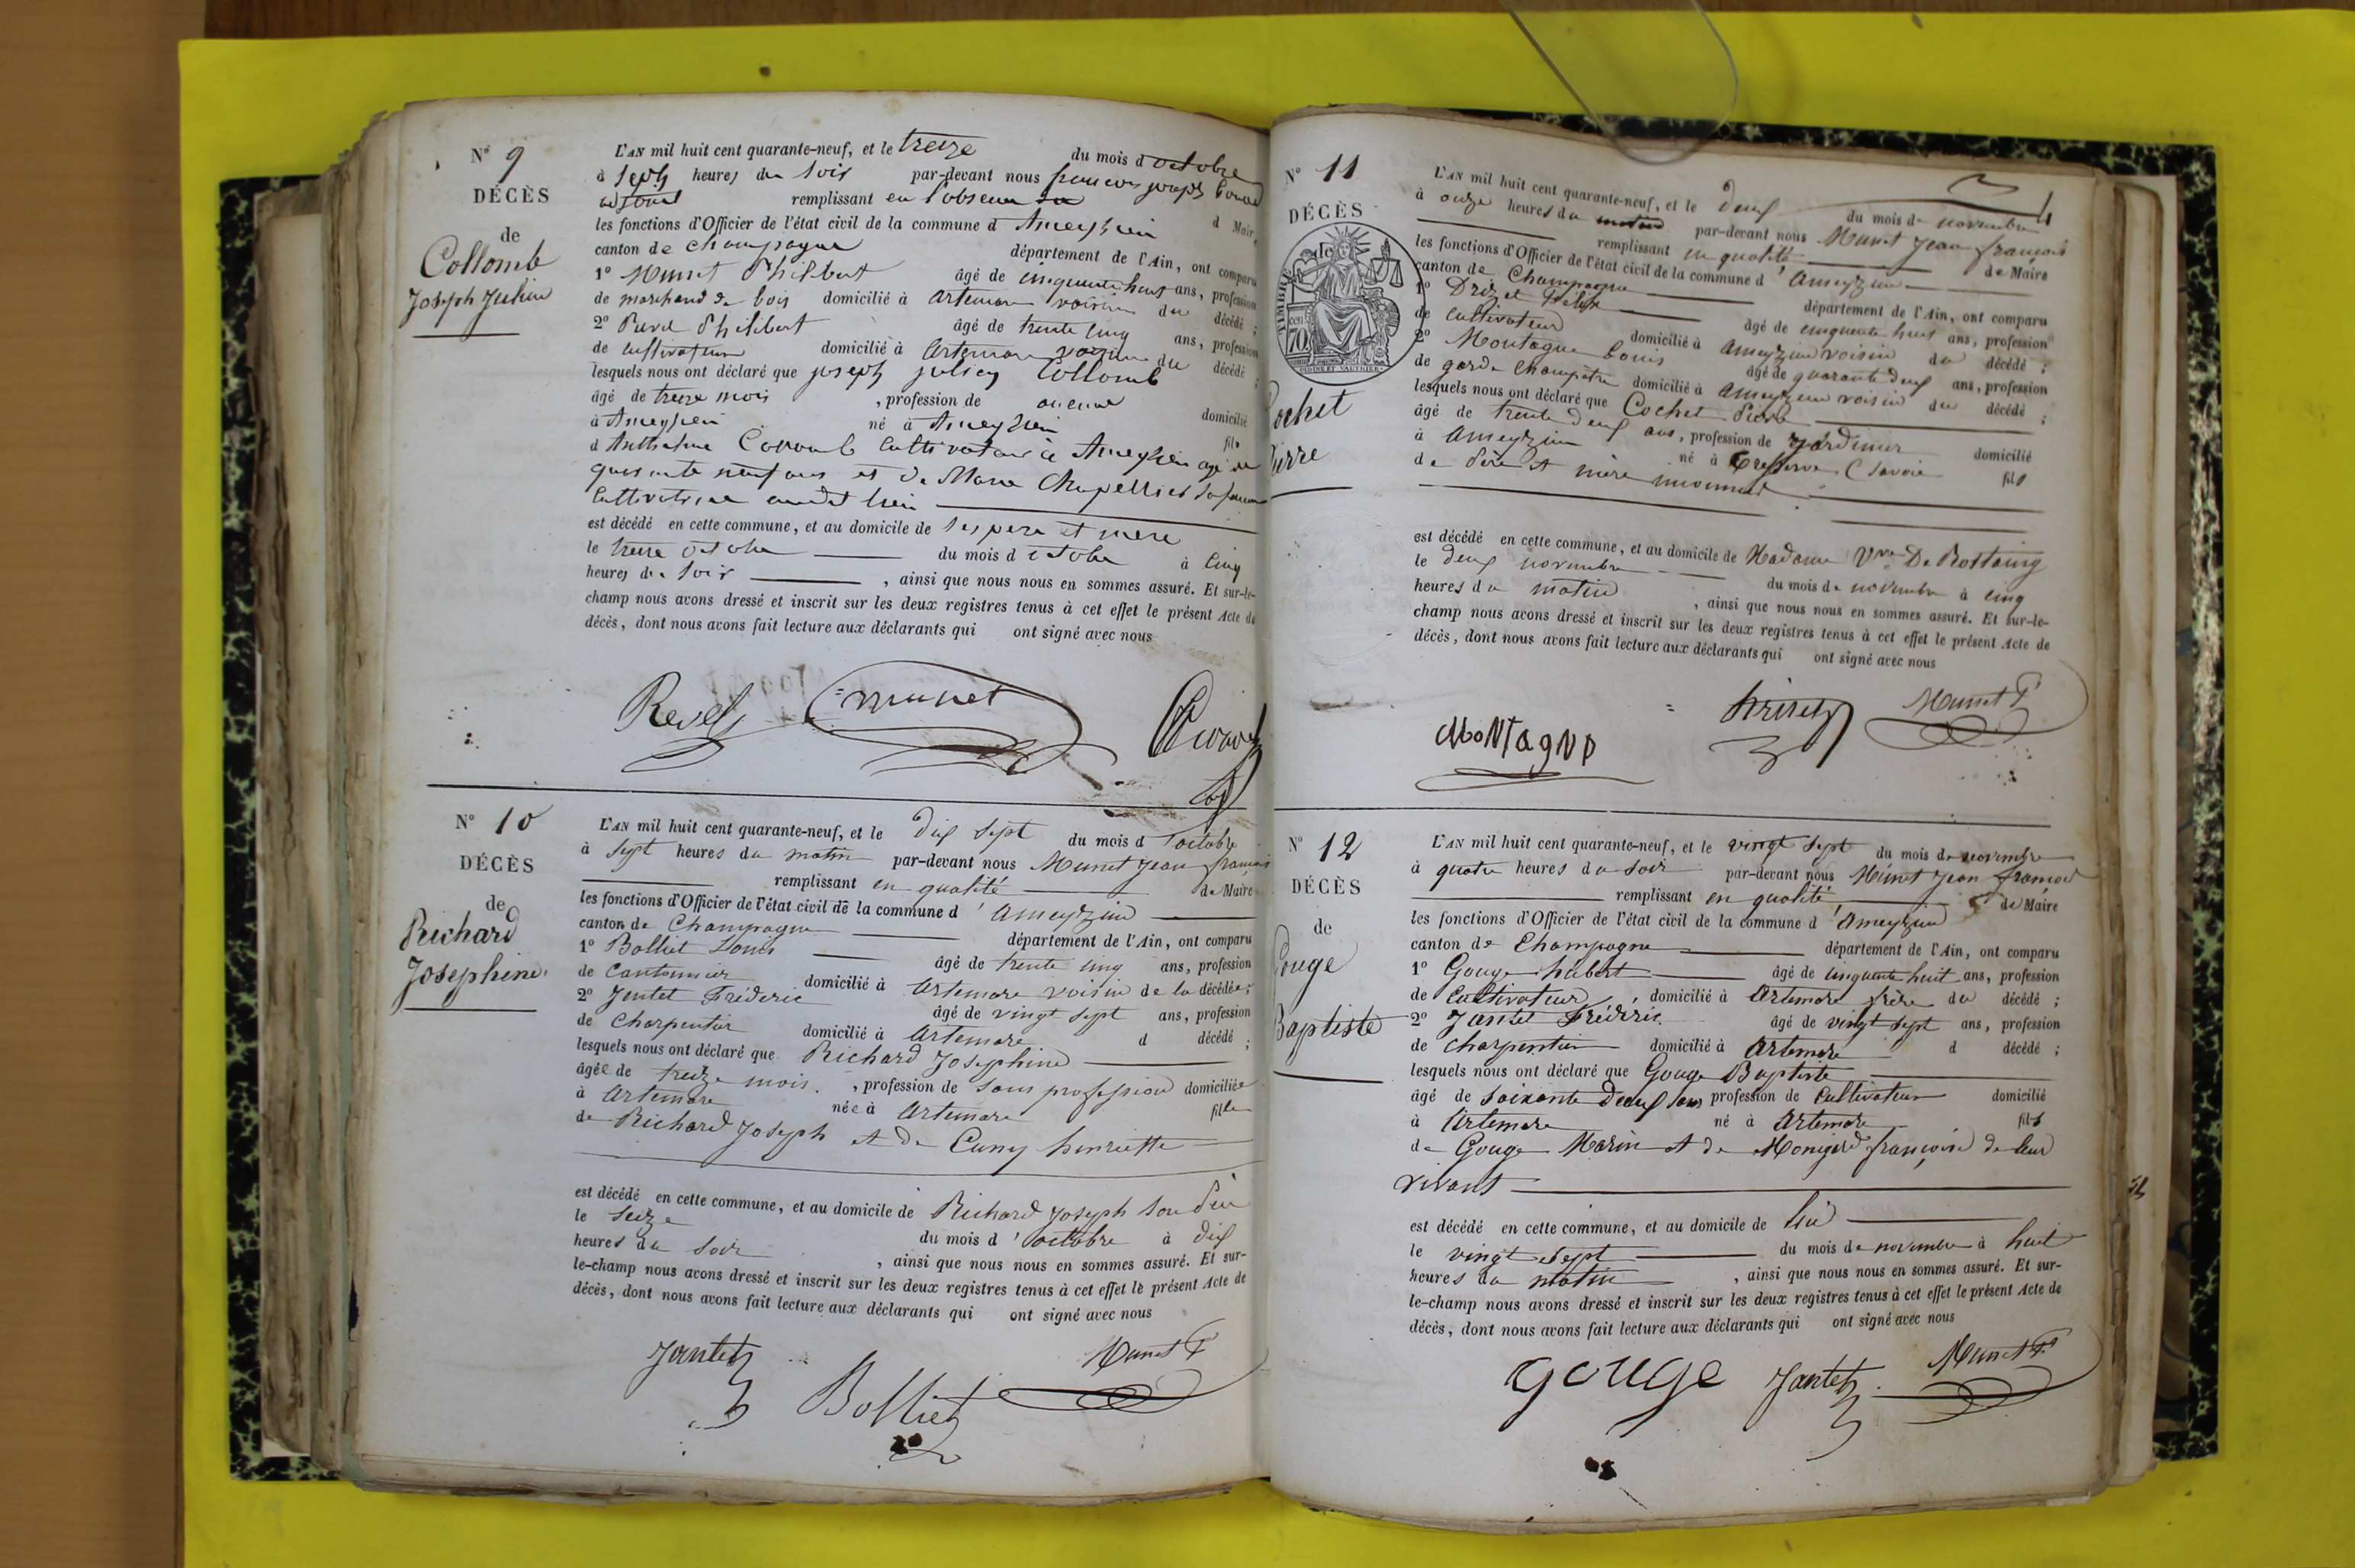 N° 9
DÉCÈS
de
Collomb
Joseph Julien
L'AN mil huit cent quarante-neuf, et le treize du mois d octobre
à sept heures du soir par-devant nous françois joseph
adjoint remplissant en l'absence du d Maire
les fonctions d'Officier de l'état civil de la commune d Ameyzieu
canton de champagne département de l'Ain, ont comparu
1° Munet Philibert âgé de cinquante huit ans, profession
de marchand de bois domicilié à artemare voisin du décédé ;
2° Revel Philibert âgé de trente cinq ans, profession
de cultivateur domicilié à Artemare voisin du décédé ;
lesquels nous ont déclaré que joseph julien Collomb
âgé de treize mois , profession de aucune domicilié
à Ameyzieu né à Ameyzieu fils
d Anthelme Collomb Cultivateur à Ameyzieu agé de
quarante neuf ans et de Marie Chapellier sa femme
Cultivatrice audit lieu
est décédé en cette commune, et au domicile de ses pere et mere
le treize octobre du mois d octobre à cinq
heures du soir , ainsi que nous nous en sommes assuré. Et sur-le-
champ nous avons dressé et inscrit sur les deux registres tenus à cet effet le présent Acte de
décès, dont nous avons fait lecture aux déclarants qui ont signé avec nous
Revel munet
N° 10
DÉCÈS
de
Richard
Josephine
L'AN mil huit cent quarante-neuf, et le dix sept du mois d'octobre
à sept heures du matin par-devant nous Munet Jean françois
remplissant en qualité de Maire
les fonctions d'Officier de l'état civil de la commune d'Ameyzieu
canton de Champagne département de l'Ain, ont comparu
1° Bolliet Louis âgé de trente cinq ans, profession
de Cantonnier domicilié à Artemare voisin de la décédée ;
2° Jantet Fréderic âgé de vingt sept ans, profession
de Charpentier domicilié à Artemare d décédé ;
lesquels nous ont déclaré que Richard Josephine
âgée de treize mois , profession de sans profession domiciliée
à Artemare née à Artemare fille
de Richard Joseph et de Cuny henriette
est décédé en cette commune, et au domicile de Richard Joseph son Père
le seize du mois d'octobre à dix
heures du soir , ainsi que nous nous en sommes assuré. Et sur-
le-champ nous avons dressé et inscrit sur les deux registres tenus à cet effet le présent Acte de
décès, dont nous avons fait lecture aux déclarants qui ont signé avec nous
Jantet Bolliet Munet F
N° 11
DÉCÈS
TIMBRE
70
ochet
ierre
L'AN mil huit cent quarante-neuf, et le deux du mois de novembre
à onze heures du matin par-devant nous Munet Jean françois
remplissant en qualité de Maire
les fonctions d'Officier de l'état civil de la commune d'Ameyzieu
canton de Champagne département de l'Ain, ont comparu
1° Felix âgé de cinquante huit ans, profession
de cultivateur domicilié à Ameyzieu voisin du décédé ;
2° Montagne Louis âgé de quarante deux ans, profession
de garde champêtre domicilié à Ameyzieu voisin du décédé ;
lesquels nous ont déclaré que Cochet Pierre
âgé de trente deux ans, profession de jardinier domicilié
à Ameyzieu né à (Savoie fils
de Père et mère inconnus
est décédé en cette commune, et au domicile de Madame Vve De Rostaing
le deux novembre du mois de novembre à cinq
heures du matin , ainsi que nous nous en sommes assuré. Et sur-le-
champ nous avons dressé et inscrit sur les deux registres tenus à cet effet le présent Acte de
décès, dont nous avons fait lecture aux déclarants qui ont signé avec nous
MoNTagNe Munet F
N° 12
DÉCÈS
de
Gouge
Baptiste
L'AN mil huit cent quarante-neuf, et le vingt sept du mois de novembre
à quatre heures du soir par-devant nous Munet Jean françois
remplissant en qualité de Maire
les fonctions d'Officier de l'état civil de la commune d'Ameyzieu
canton de Champagne département de l'Ain, ont comparu
1° Gouge hubert âgé de cinquante huit ans, profession
de Cultivateur domicilié à Artemare frère du décédé ;
2° Jantet Fréderic âgé de vingt sept ans, profession
de charpentier domicilié à Artemare d décédé ;
lesquels nous ont déclaré que Gouge Baptiste
âgé de soixante deux ans profession de Cultivateur domicilié
à Artemare né à Artemare fils
de Gouge Marin et de françoise de leur
vivant
est décédé en cette commune, et au domicile de lui
le vingt sept du mois de novembre à huit
heures du matin , ainsi que nous nous en sommes assuré. Et sur-
le-champ nous avons dressé et inscrit sur les deux registres tenus à cet effet le présent Acte de
décès, dont nous avons fait lecture aux déclarants qui ont signé avec nous
gouge Jantet Munet F